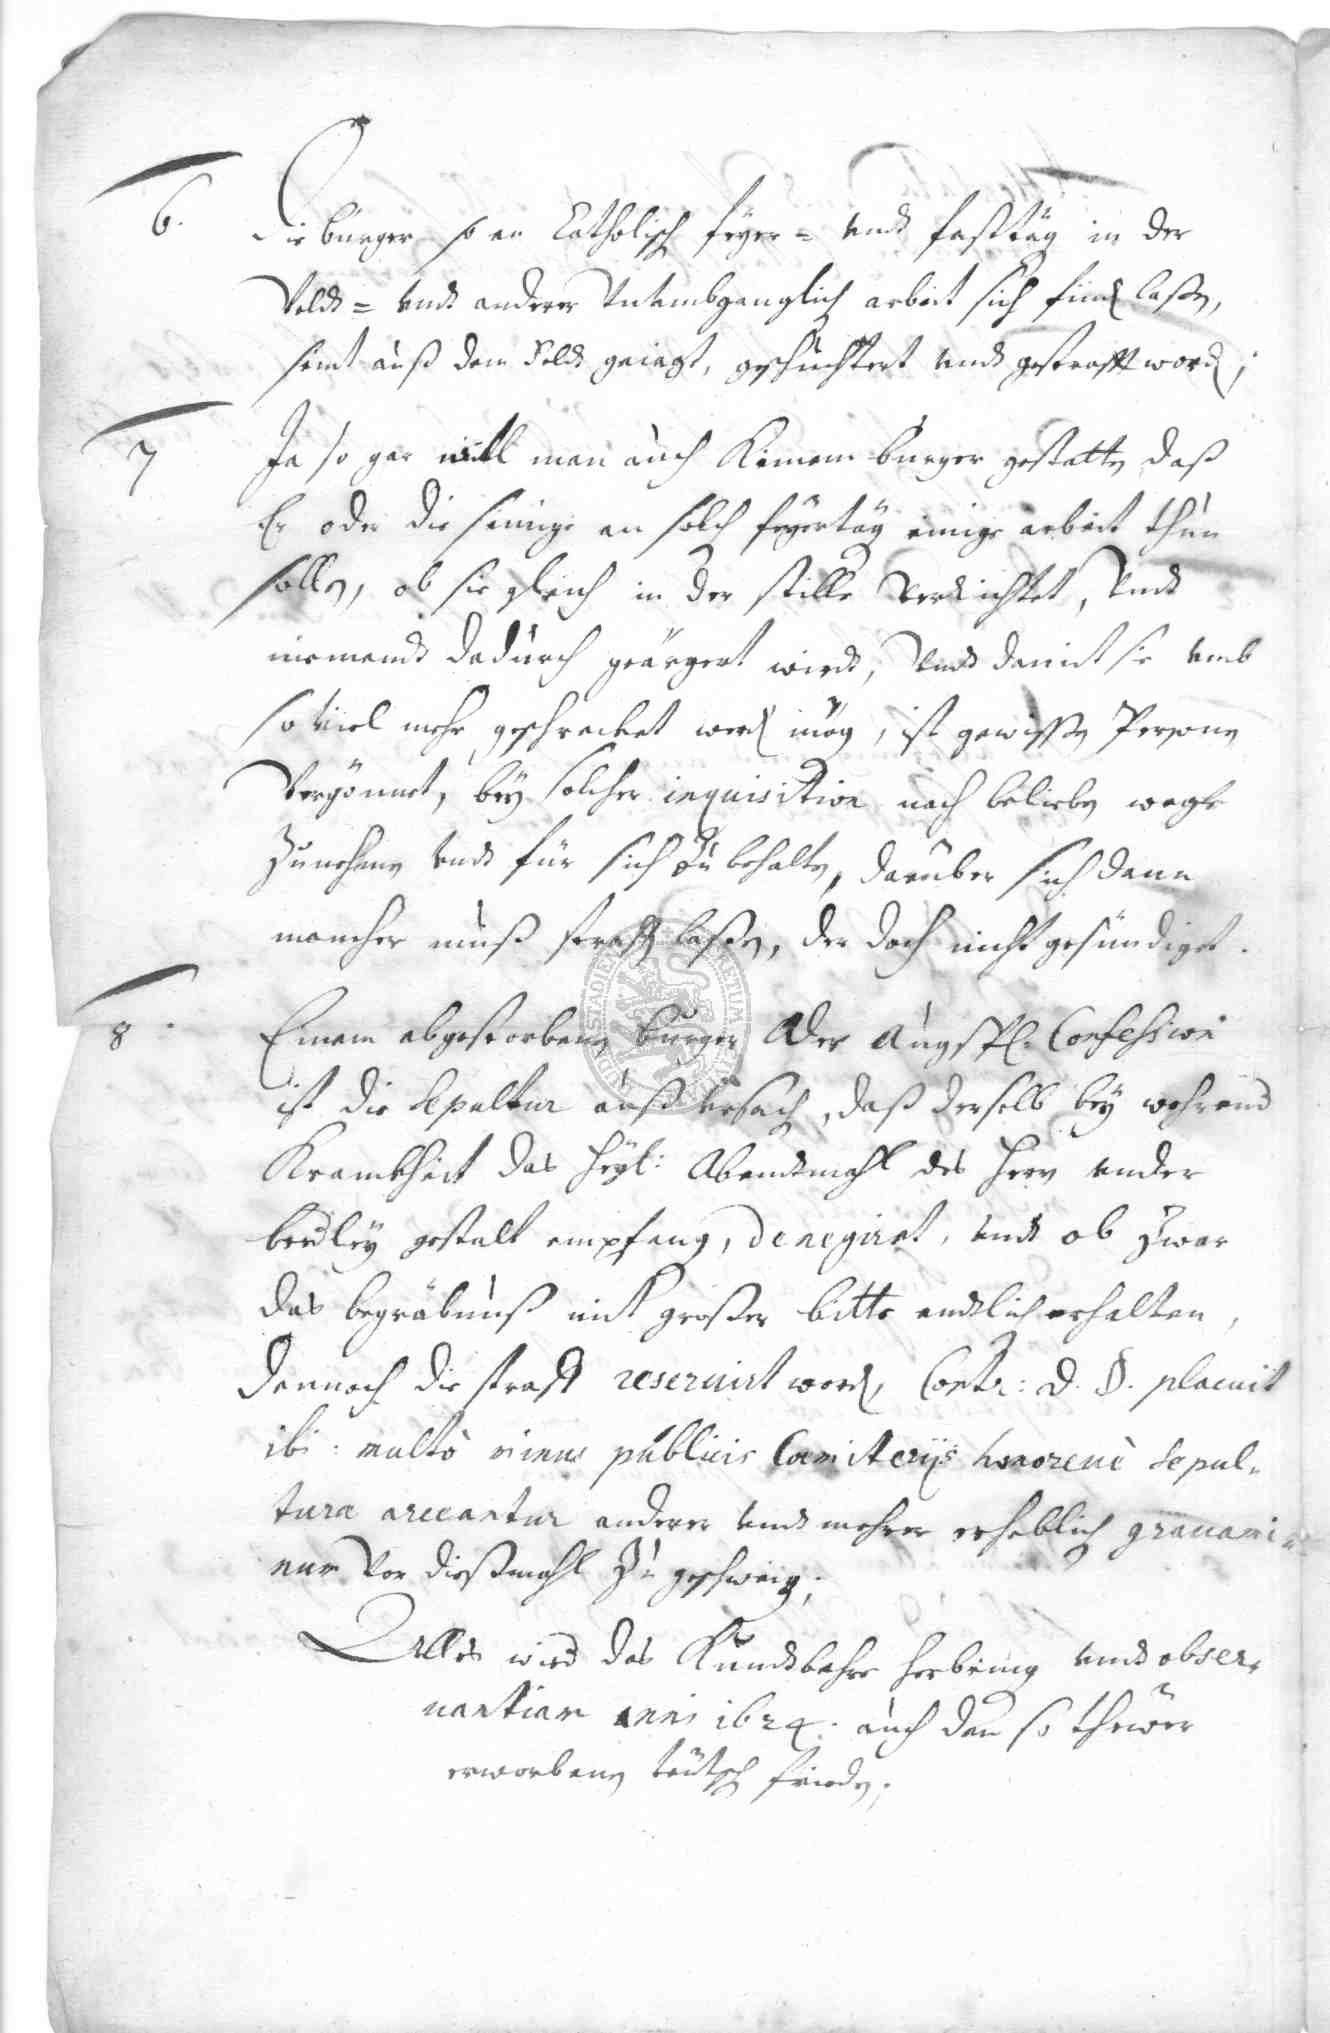 6.
Die bürger so an Catholisch feyer= vndt fasttäg in der
Veldt= vndt anderer Vnumbganglich arbeit sich find laßen,
seint auß dem Feldt geiagt, geschüchtert vndt gestrafft word;
7
Ja so gar will man auch Keinem bürger gestatten daß
Er oder die seinige an solch feyertäg einige arbeit thun
sollen, ob sie gleich in der stille Verrichtet, Vndt
niemandt dadurch geärgert wirdt, Vndt damit sie vmb
so viel mehr geschrecket werd mög, ist gewissen Personen
Vergönnet, bey solcher inquisition nach belieben wegk
Zunehmen vndt für sich Zu behalten, darüber sich dann
mancher muß straffen laßen, der doch nicht gesündiget.
8.
Einem abgestorbenen burger der Augspl: Confession
ist die Sepultur auß Vrsach, daß derselb bey wehrend
Kranckheit das heyl: Abendtmahl des Herrn vnder
beedley gestalt empfang, denegiret, vndt ob Zwar
das begräbnuß mit großer bitte endtlich erhalten,
dennoch die straff reseruirt word, Contr: d. §. placuit
ibi: multò minus publicis Coemiterijs honoreuè Sepul=
tura arceantur anderer vndt mehrer erheblich grauami=
num Vor dießmahl Zu geschweig;
Alles wird das Kundtbahre herbring vndt obser=
uantiam anni 1624. auch den so thewer
erworbenen teütsch frieden;